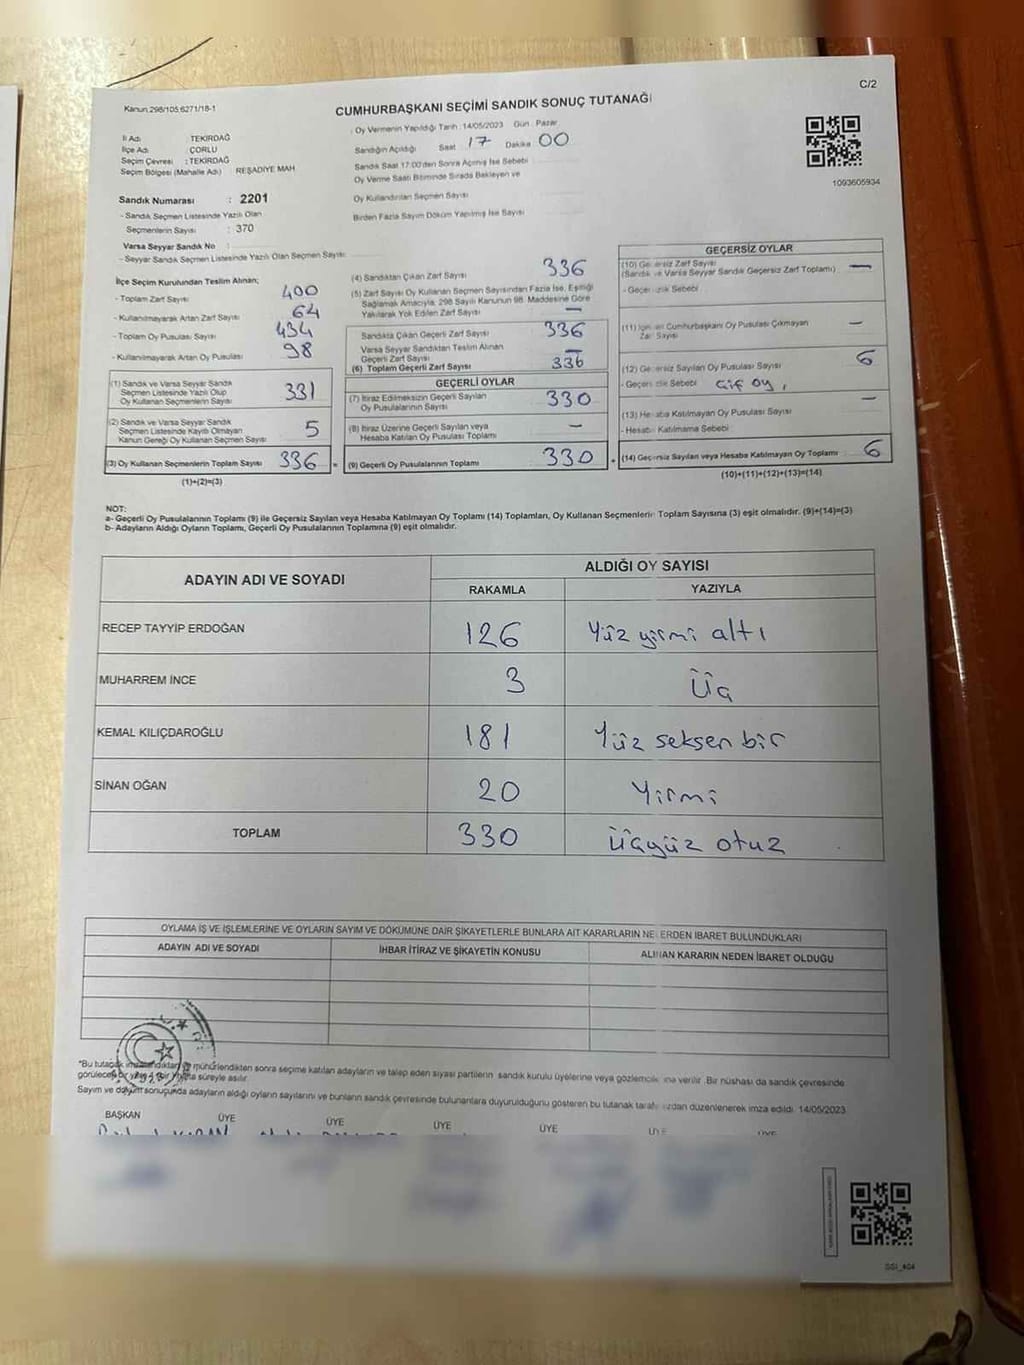 Kanun 298/105,6271/18-1
C/2
CUMHURBAŞKANI SEÇİMİ SANDIK SONUÇ TUTANAĞI
İl Adı : TEKİRDAĞ
İlçe Adı : ÇORLU
Seçim Çevresi : TEKİRDAĞ
Seçim Bölgesi (Mahalle Adı) REŞADİYE MAH
Oy Vermenin Yapıldığı Tarih : 14/05/2023 Gün : Pazar
Sandığın Açıldığı Saat 17 Dakika 00
Sandık Saat 17:00'den Sonra Açılmış İse Sebebi
Oy Verme Saati Bitiminde Sırada Bekleyen ve
Oy Kullandırılan Seçmen Sayısı
Birden Fazla Sayım Döküm Yapılmış İse Sayısı
1093605934
Sandık Numarası : 2201
- Sandık Seçmen Listesinde Yazılı Olan
Seçmenlerin Sayısı : 370
Varsa Seyyar Sandık No :
- Seyyar Sandık Seçmen Listesinde Yazılı Olan Seçmen Sayısı:
İlçe Seçim Kurulundan Teslim Alınan;
- Toplam Zarf Sayısı 400
- Kullanılmayarak Artan Zarf Sayısı 64
- Toplam Oy Pusulası 434
- Kullanılmayarak Artan Oy Pusulası 98
(1) Sandık ve Varsa Seyyar Sandık
Seçmen Listesinde Yazılı Olup
Oy Kullanan Seçmenlerin Sayısı 331
(2) Sandık ve Varsa Seyyar Sandık
Seçmen Listesinde Kayıtlı Olmayan
Kanun Gereği Oy Kullanan Seçmen Sayısı 5
(3) Oy Kullanan Seçmenlerin Toplam Sayısı 336
(1)+(2)=(3)
(4) Sandıktan Çıkan Zarf Sayısı 336
(5) Zarf Sayısı Oy Kullanan Seçmen Sayısından Fazla İse, Eşitliği
Sağlamak Amacıyla, 298 Sayılı Kanunun 98. Maddesine Göre
Yakılarak Yok Edilen Zarf Sayısı —
Sandıkta Çıkan Geçerli Zarf Sayısı 336
Varsa Seyyar Sandıktan Teslim Alınan
Geçerli Zarf Sayısı —
(6) Toplam Geçerli Zarf Sayısı 336
GEÇERLİ OYLAR
(7) İtiraz Edilmeksizin Geçerli Sayılan
Oy Pusulalarının Sayısı 330
(8) İtiraz Üzerine Geçerli Sayılan veya
Hesaba Katılan Oy Pusulası Toplamı —
= (9) Geçerli Oy Pusulalarının Toplamı 330
GEÇERSİZ OYLAR
(10) Geçersiz Zarf Sayısı
(Sandık ve Varsa Seyyar Sandık Geçersiz Zarf Toplamı) —
- Geçersizlik Sebebi
Cumhurbaşkanı Oy Pusulası Çıkmayan
Zarf Sayısı —
(12) Geçersiz Sayılan Oy Pusulası Sayısı 6
- Geçersizlik Sebebi Çift oy,
(13) Hesaba Katılmayan Oy Pusulası Sayısı —
- Hesaba Katılmama Sebebi
+ (14) Geçersiz Sayılan veya Hesaba Katılmayan Oy Toplamı 6
(10)+(11)+(12)+(13)=(14)
NOT:
a- Geçerli Oy Pusulalarının Toplamı (9) ile Geçersiz Sayılan veya Hesaba Katılmayan Oy Toplamı (14) Toplamları, Oy Kullanan Seçmenlerin Toplam Sayısına (3) eşit olmalıdır. (9)+(14)=(3)
b- Adayların Aldığı Oyların Toplamı, Geçerli Oy Pusulalarının Toplamına (9) eşit olmalıdır.
ADAYIN ADI VE SOYADI ALDIĞI OY SAYISI
RAKAMLA YAZIYLA
RECEP TAYYİP ERDOĞAN 126 Yüz yirmi altı
MUHARREM İNCE 3 Üç
KEMAL KILIÇDAROĞLU 181 Yüz seksen bir
SİNAN OĞAN 20 Yirmi
TOPLAM 330 Üçyüz otuz
OYLAMA İŞ VE İŞLEMLERİNE VE OYLARIN SAYIM VE DÖKÜMÜNE DAİR ŞİKAYETLERLE BUNLARA AİT KARARLARIN NELERDEN İBARET BULUNDUKLARI
ADAYIN ADI VE SOYADI İHBAR İTİRAZ VE ŞİKAYETİN KONUSU ALINAN KARARIN NEDEN İBARET OLDUĞU
*Bu tutanak imzalandıktan ve mühürlendikten sonra seçime katılan adayların ve talep eden siyasi partilerin sandık kurulu üyelerine veya gözlemcilerine verilir. Bir nüshası da sandık çevresinde
görülecek bir yere süreyle asılır.
Sayım ve döküm sonuçunda adayların aldığı oyların sayılarını ve bunların sandık çevresinde bulunanlara duyurulduğunu gösteren bu tutanak tarafımızdan düzenlenerek imza edildi. 14/05/2023
BAŞKAN ÜYE ÜYE ÜYE ÜYE ÜYE ÜYE